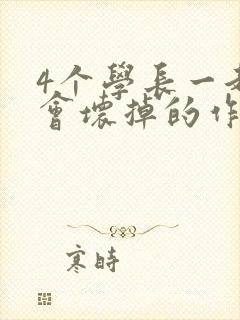 4个學長一
會壞掉的作
寒時